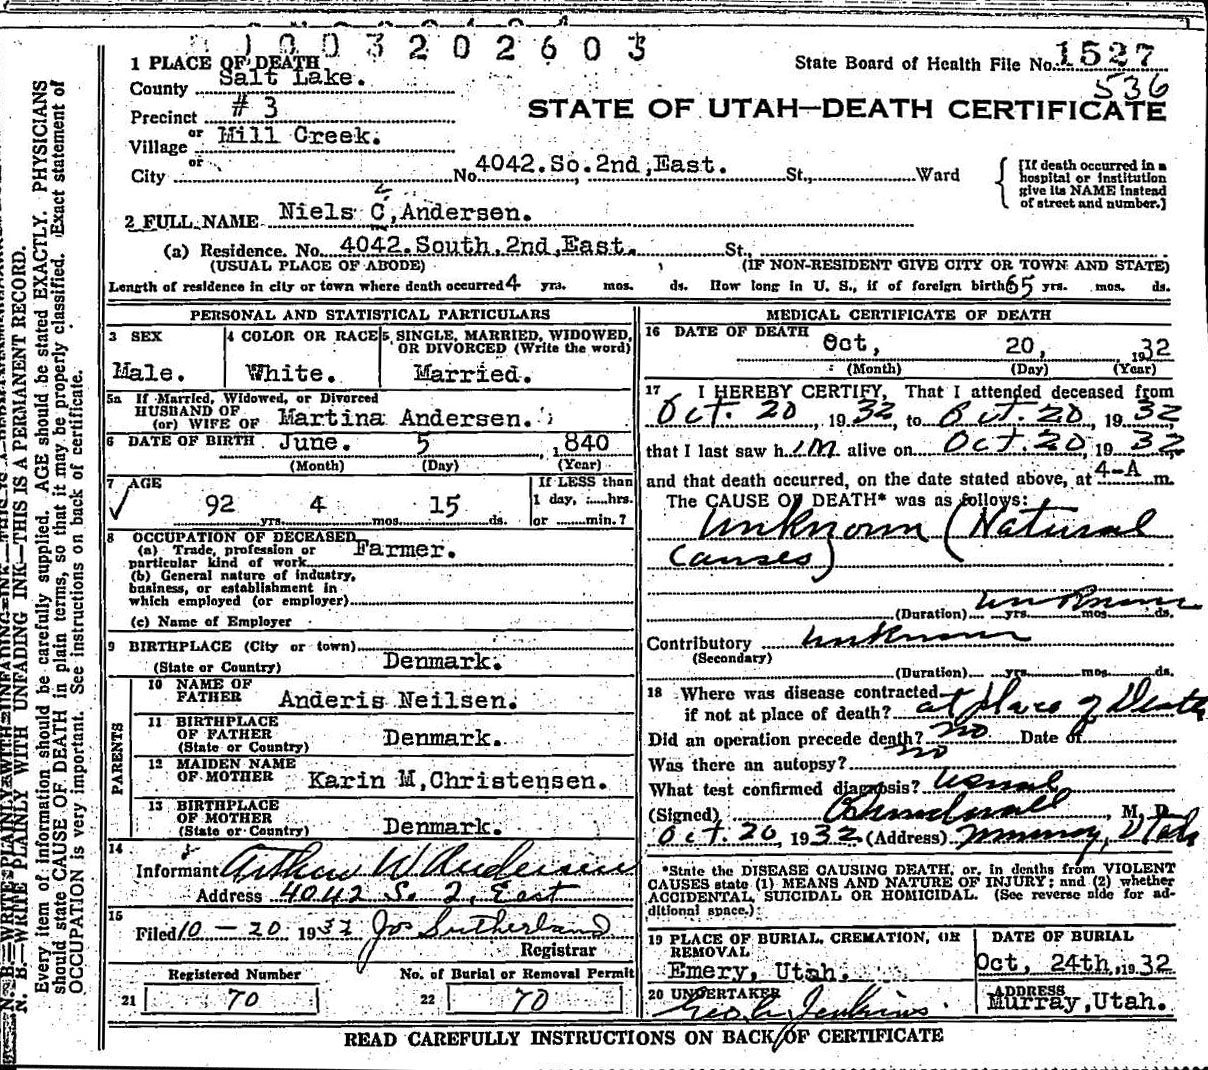 1003202603
1 PLACE OF DEATH
State Board of Health File No. 1527
County Salt Lake.
536
Precinct # 3
STATE OF UTAH—DEATH CERTIFICATE
or
Village Mill Creek.
or
City No. 4042. So. 2nd, East. St., Ward
[If death occurred in a hospital or institution give its NAME instead of street and number.]
2 FULL NAME Niels C, Andersen.
(a) Residence. No. 4042. South. 2nd, East. St.,
(USUAL PLACE OF ABODE) (IF NON-RESIDENT GIVE CITY OR TOWN AND STATE)
Length of residence in city or town where death occurred 4 yrs. mos. ds. How long in U. S., if of foreign birth 65 yrs. mos. ds.
PERSONAL AND STATISTICAL PARTICULARS
3 SEX
Male.
4 COLOR OR RACE
White.
5 SINGLE, MARRIED, WIDOWED,
OR DIVORCED (Write the word)
Married.
5a If Married, Widowed, or Divorced
HUSBAND OF
(or) WIFE OF Martina Andersen.
6 DATE OF BIRTH June. 5 , 1840
(Month) (Day) (Year)
7 AGE
92 yrs. 4 mos. 15 ds.
If LESS than
1 day, ....hrs.
or ......min.?
8 OCCUPATION OF DECEASED
(a) Trade, profession or
particular kind of work Farmer.
(b) General nature of industry,
business, or establishment in
which employed (or employer)
(c) Name of Employer
9 BIRTHPLACE (City or town)
(State or Country) Denmark.
PARENTS
10 NAME OF
FATHER Anderis Neilsen.
11 BIRTHPLACE
OF FATHER
(State or Country) Denmark.
12 MAIDEN NAME
OF MOTHER Karin M, Christensen.
13 BIRTHPLACE
OF MOTHER
(State or Country) Denmark.
14
Informant Arthur W Andersen
Address 4042 So. 2, East
15
Filed 10 - 20 1932 Jos Sutherland
Registrar
Registered Number
21 70
No. of Burial or Removal Permit
22 70
MEDICAL CERTIFICATE OF DEATH
16 DATE OF DEATH Oct, 20, 1932
(Month) (Day) (Year)
17 I HEREBY CERTIFY, That I attended deceased from
Oct. 20, 1932, to Oct. 20, 1932,
that I last saw him alive on Oct. 20, 1932
and that death occurred, on the date stated above, at 4-A m.
The CAUSE OF DEATH* was as follows:
Unknown (Natural
Causes)
(Duration) unknown yrs. mos. ds.
Contributory unknown
(Secondary)
(Duration) yrs. mos. ds.
18 Where was disease contracted
if not at place of death? at place of Death
Did an operation precede death? no Date of
Was there an autopsy? no
What test confirmed diagnosis? usual
(Signed) , M. D.
Oct. 20, 1932 (Address) Murray, Utah
*State the DISEASE CAUSING DEATH, or, in deaths from VIOLENT
CAUSES state (1) MEANS AND NATURE OF INJURY; and (2) whether
ACCIDENTAL, SUICIDAL OR HOMICIDAL. (See reverse side for ad-
ditional space.)
19 PLACE OF BURIAL, CREMATION, OR
REMOVAL
Emery, Utah.
DATE OF BURIAL
Oct, 24th, 1932
20 UNDERTAKER
Geo. C. Jenkins.
ADDRESS
Murray, Utah.
READ CAREFULLY INSTRUCTIONS ON BACK OF CERTIFICATE
N. B.—WRITE PLAINLY WITH UNFADING INK—THIS IS A PERMANENT RECORD.
Every item of information should be carefully supplied. AGE should be stated EXACTLY. PHYSICIANS
should state CAUSE OF DEATH in plain terms, so that it may be properly classified. Exact statement of
OCCUPATION is very important. See instructions on back of certificate.